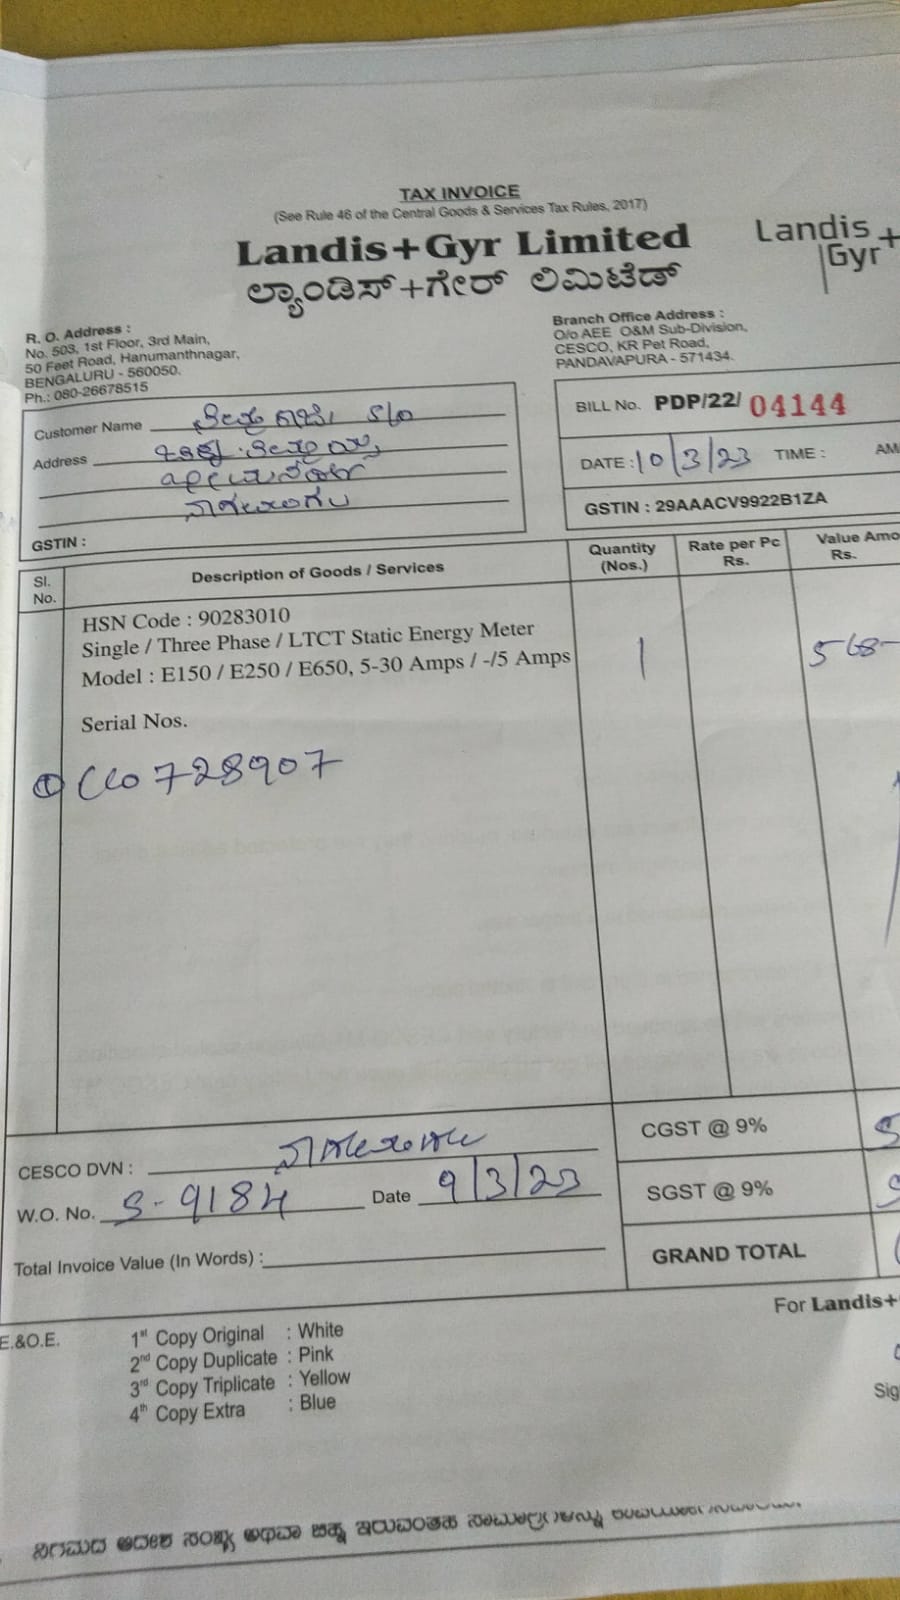 TAX INVOICE
(See Rule 46 of the Central Goods & Services Tax Rules, 2017)
Landis+Gyr Limited
ಲ್ಯಾಂಡಿಸ್+ಗೇರ್ ಲಿಮಿಟೆಡ್
Landis+
Gyr
R. O. Address :
No. 503, 1st Floor, 3rd Main,
50 Feet Road, Hanumanthnagar,
BENGALURU - 560050.
Ph.: 080-26678515
Branch Office Address :
O/o AEE O&M Sub-Division,
CESCO, KR Pet Road,
PANDAVAPURA - 571434.
Customer Name S/o
Address
GSTIN :
BILL No. PDP/22/ 04144
DATE : 10/3/23 TIME : AM
GSTIN : 29AAACV9922B1ZA
Sl. No. Description of Goods / Services Quantity (Nos.) Rate per Pc Rs. Value Amo Rs.
HSN Code : 90283010
Single / Three Phase / LTCT Static Energy Meter
Model : E150 / E250 / E650, 5-30 Amps / -/5 Amps 1 568-
Serial Nos.
① 728907
CESCO DVN :
W.O. No. S-9184 Date 9/3/23
Total Invoice Value (In Words) :
CGST @ 9% 5
SGST @ 9% 5
GRAND TOTAL
For Landis+
E.&O.E.
1st Copy Original : White
2nd Copy Duplicate : Pink
3rd Copy Triplicate : Yellow
4th Copy Extra : Blue
Sig